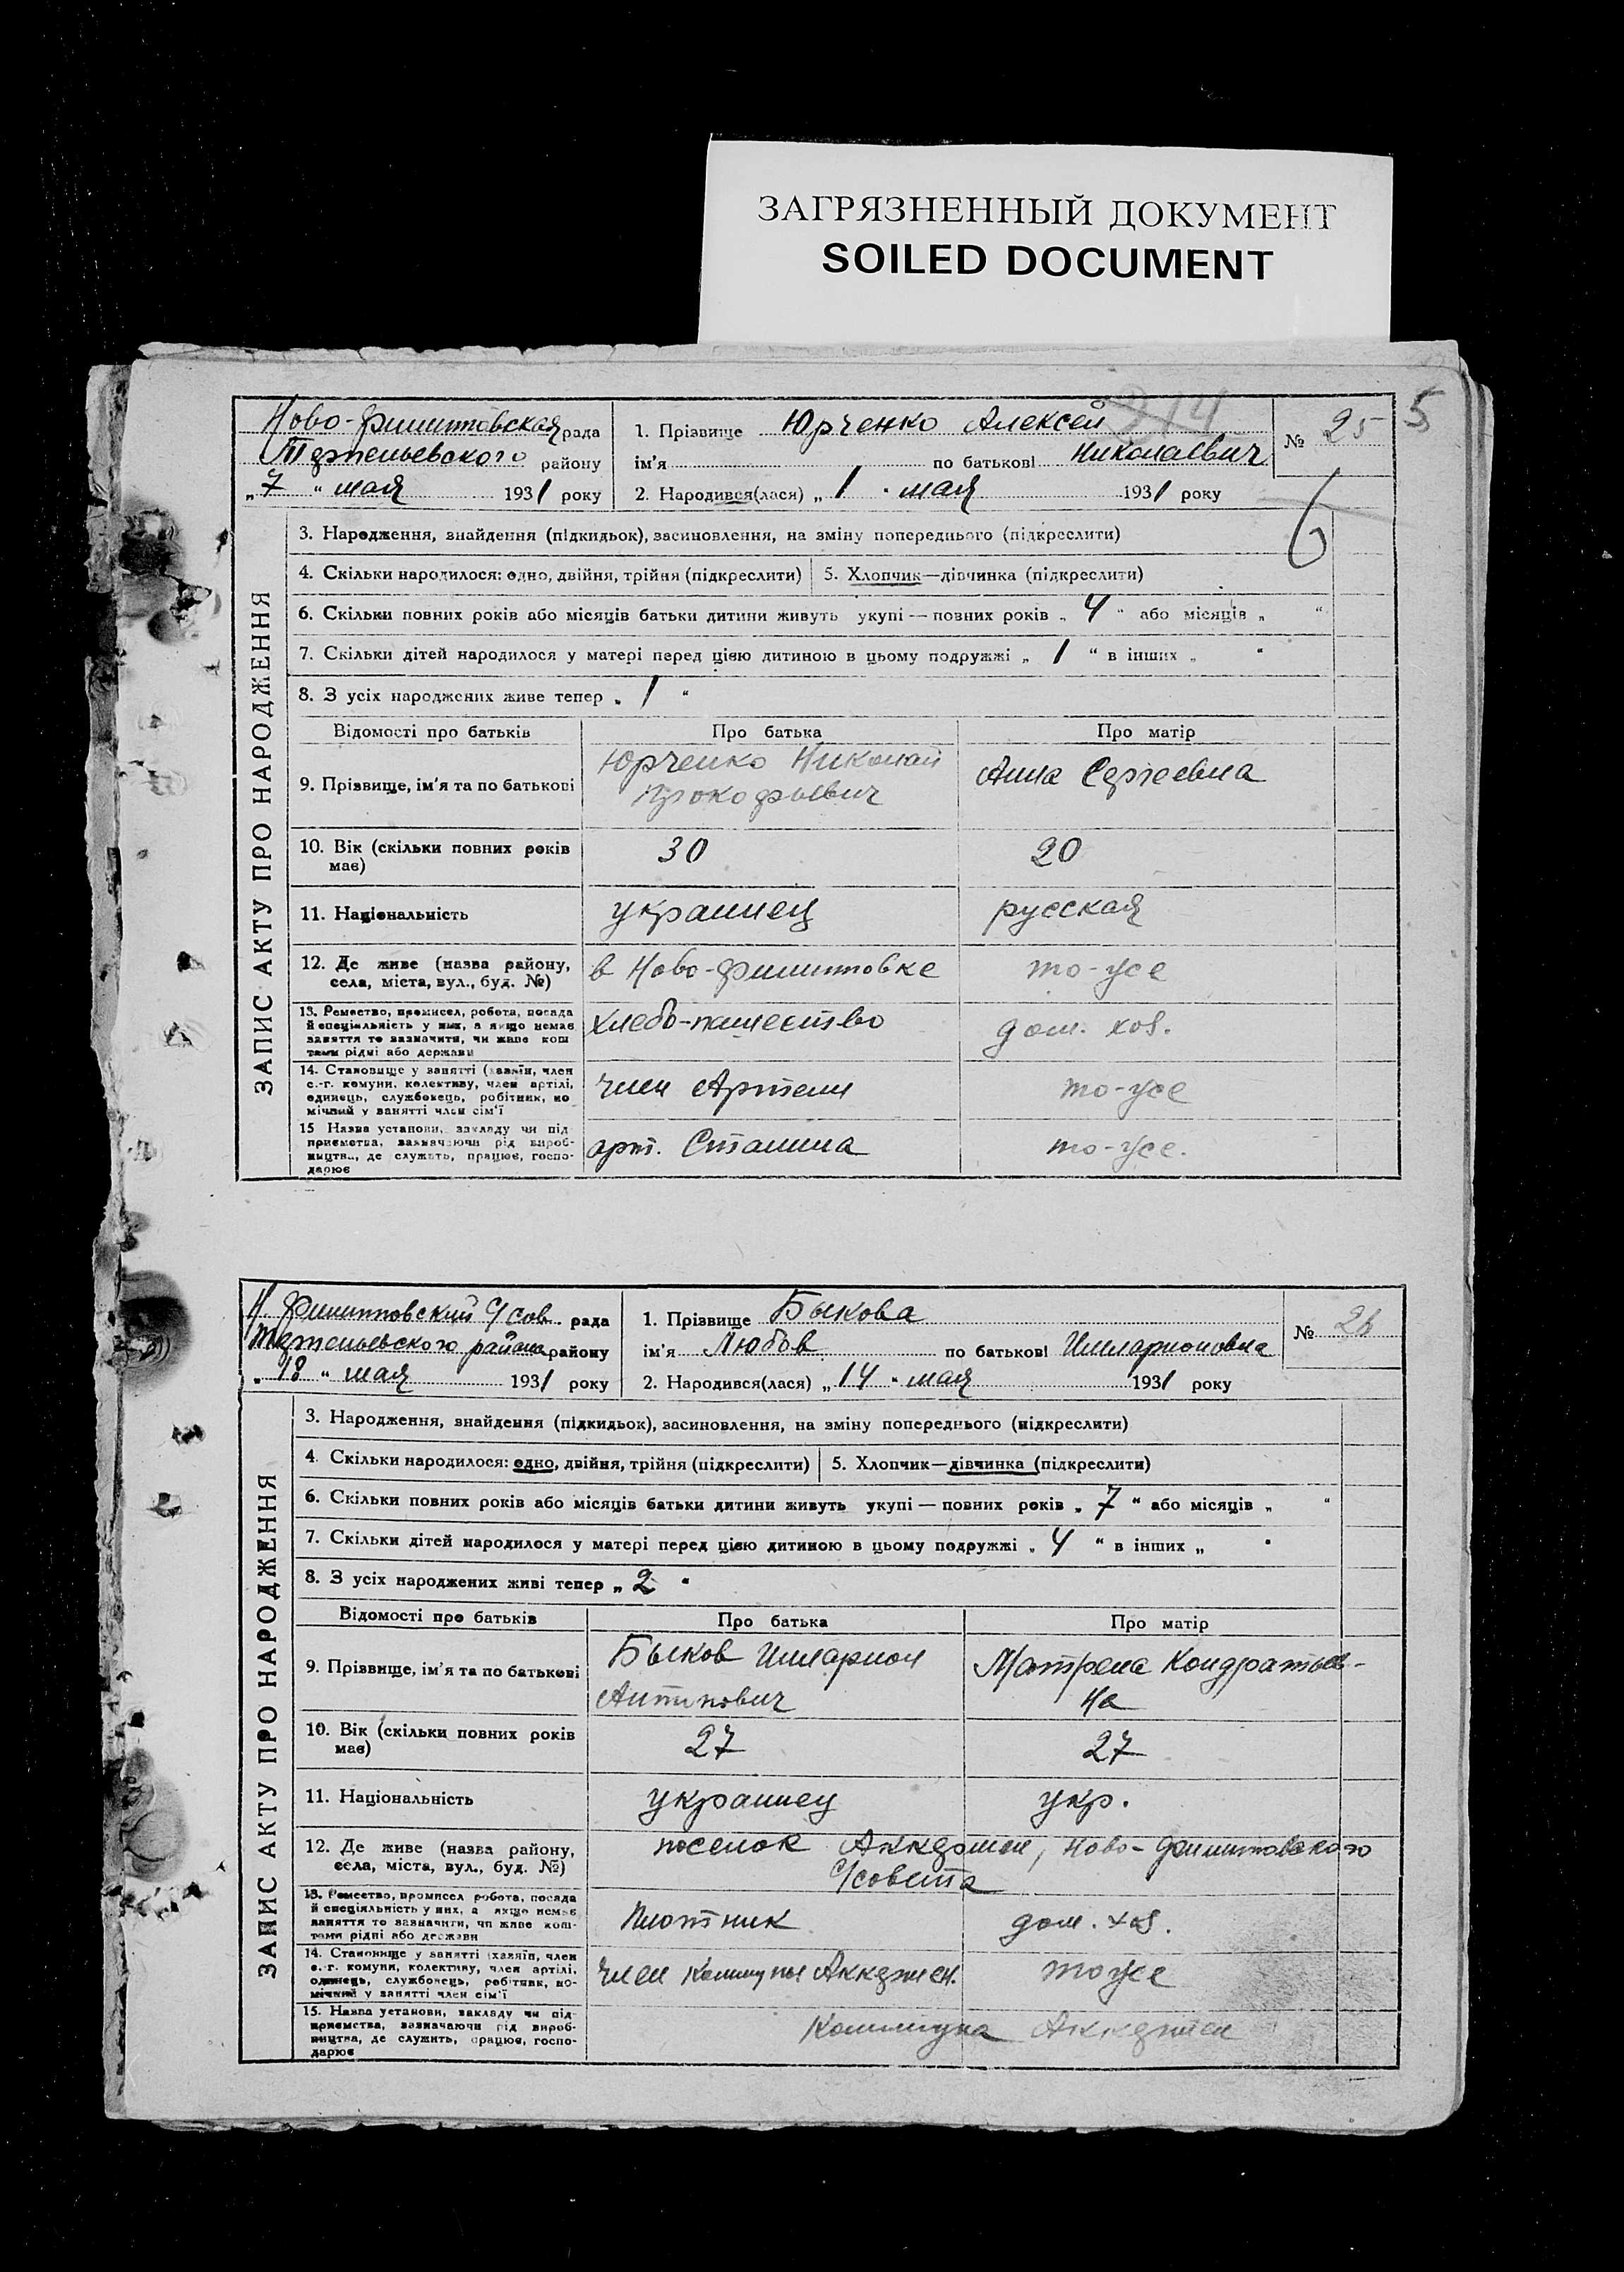 ЗАГРЯЗНЕННЫЙ ДОКУМЕНТ
SOILED DOCUMENT
5
314
Ново-Филипповская рада
района
„7" мая 1931 року
1. Прізвище Юрченко Алексей
ім'я по батькові Николаевич
2. Народився(лася) „1" мая 1931 року
№ 25
6
ЗАПИС АКТУ ПРО НАРОДЖЕННЯ
3. Народження, знайдення (підкидьок), засиновлення, на зміну попереднього (підкреслити)
4. Скільки народилося: одно, двійня, трійня (підкреслити) 5. Хлопчик—дівчинка (підкреслити)
6. Скільки повних років або місяців батьки дитини живуть укупі — повних років „4" або місяців „ "
7. Скільки дітей народилося у матері перед цією дитиною в цьому подружжі „1" в інших „ "
8. З усіх народжених живе тепер „1"
Відомості про батьків Про батька Про матір
9. Прізвище, ім'я та по батькові Юрченко Николай Прокофьевич Анна Сергеевна
10. Вік (скільки повних років має) 30 20
11. Національність украинец русская
12. Де живе (назва району, села, міста, вул., буд. №) в Ново-Филипповке то-же
13. Ремество, промисел, робота, посада й спеціальність у них, а якщо немає заняття то зазначити, чи живе коштами рідні або держави хлебо-пашество дом. хоз.
14. Становище у занятті (хазяїн, член с.-г. комуни, колективу, член артілі, одинець, службовець, робітник, помічний у занятті член сім'ї член Артели то-же
15 Назва установи, закладу чи підприємства, зазначаючи рід виробництва, де служить, працює, господарює арт. Сталина то-же.
Н. Филипповский с/сов. рада
района району
„18" мая 1931 року
1. Прізвище Быкова
ім'я Любов по батькові Илларионовна
2. Народився(лася) „14" мая 1931 року
№ 26
ЗАПИС АКТУ ПРО НАРОДЖЕННЯ
3. Народження, знайдення (підкидьок), засиновлення, на зміну попереднього (підкреслити)
4. Скільки народилося: одно, двійня, трійня (підкреслити) 5. Хлопчик—дівчинка (підкреслити)
6. Скільки повних років або місяців батьки дитини живуть укупі — повних років „7" або місяців „ "
7. Скільки дітей народилося у матері перед цією дитиною в цьому подружжі „4" в інших „ "
8. З усіх народжених живі тепер „2"
Відомості про батьків Про батька Про матір
9. Прізвище, ім'я та по батькові Быков Илларион Антипович Матрена Кондратьев-на
10. Вік (скільки повних років має) 27 27
11. Національність украинец укр.
12. Де живе (назва району, села, міста, вул., буд. №) поселок Аккермен, Ново-Филипповского с/совета
13. Ремество, промисел робота, посада й спеціяльність у них, а якщо немає заняття то зазначити, чи живе коштами рідні або держави Плотник дом. хоз.
14. Становище у занятті (хазяїн, член с.-г. комуни, колективу, член артілі, одинець, службовець, робітник, помічний у занятті член сім'ї член Коммуны Аккермен. тоже
15. Назва установи, закладу чи підприємства, зазначаючи рід виробництва, де служить, працює, господарює Коммуна Аккермен